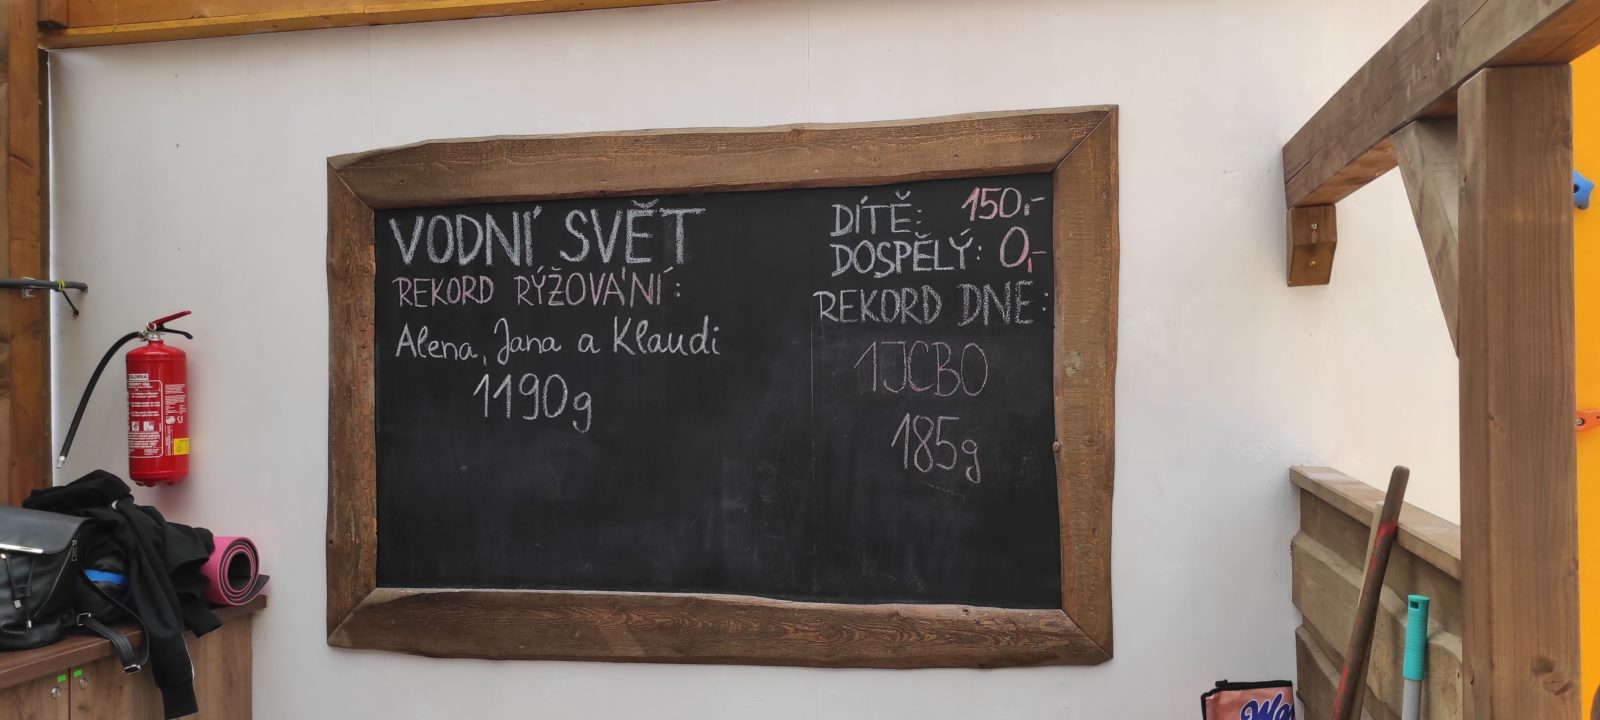 VODNÍ SVĚT
REKORD RÝŽOVÁNÍ:
Alena, Jana a Klaudi
1190g
DÍTĚ: 150,-
DOSPĚLÝ: 0,-
REKORD DNE:
1JCBO
185g
GLORIA